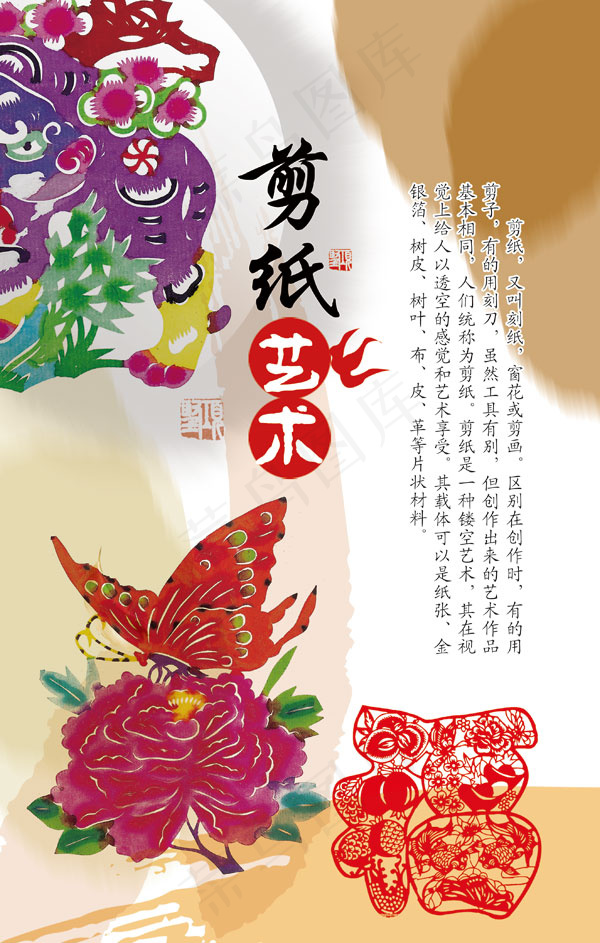 剪纸
艺术
剪纸，又叫刻纸，窗花或剪画。区别在创作时，有的用
剪子，有的用刻刀，虽然工具有别，但创作出来的艺术作品
基本相同，人们统称为剪纸。剪纸是一种镂空艺术，其在视
觉上给人以透空的感觉和艺术享受。其载体可以是纸张、金
银箔、树皮、树叶、布、皮、革等片状材料。
福
菜鸟图库